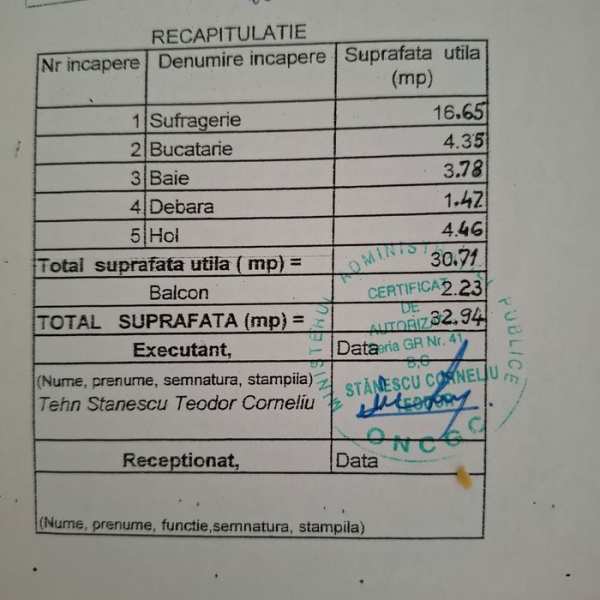 RECAPITULATIE
Nr incapere Denumire incapere Suprafata utila (mp)
1 Sufragerie 16.65
2 Bucatarie 4.35
3 Baie 3.78
4 Debara 1.47
5 Hol 4.46
Total suprafata utila ( mp) = 30.71
Balcon 2.23
TOTAL SUPRAFATA (mp) = 32.94
Executant, Data
(Nume, prenume, semnatura, stampila)
Tehn Stanescu Teodor Corneliu
Receptionat, Data
(Nume, prenume, functie,semnatura, stampila)
MINISTERUL ADMINISTRATIEI PUBLICE
CERTIFICAT
DE
AUTORIZARE
Seria GR Nr. 41
B,C
STĂNESCU CORNELIU
TEODOR
ONCGC